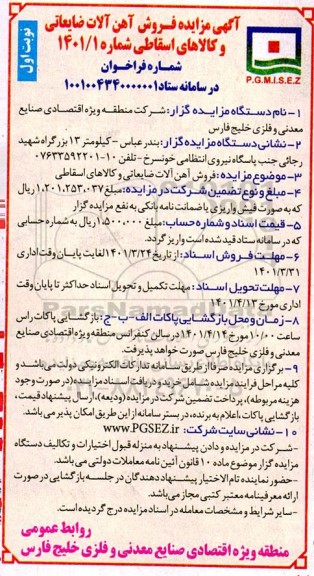 آگهی مزایده فروش آهن آلات ضایعاتی
و کالاهای اسقاطی شماره ۱۴۰۱/۱
نوبت اول
شماره فراخوان
در سامانه ستاد ۱۰۰۱۰۰۴۳۴۰۰۰۰۰۰۱
P.G.M.I.S.E.Z
۱- نام دستگاه مزایده گزار: شرکت منطقه ویژه اقتصادی صنایع
معدنی و فلزی خلیج فارس
۲- نشانی دستگاه مزایده گزار: بندرعباس - کیلومتر ۱۳ بزرگراه شهید
رجائی جنب پاسگاه نیروی انتظامی خونسرخ - تلفن ۱۰-۰۷۶۳۳۵۹۲۲۰۱
۳- موضوع مزایده: فروش آهن آلات ضایعاتی و کالاهای اسقاطی
۴- مبلغ و نوع تضمین شرکت در مزایده: مبلغ ۱,۲۰۱,۲۵۳,۰۳۷ ریال
که به صورت فیش واریزی یا ضمانت نامه بانکی به نفع مزایده گزار
۵- قیمت اسناد و شماره حساب: مبلغ ۱,۵۰۰,۰۰۰ ریال به شماره حسابی
که در سامانه ستاد قید شده است واریز گردد.
۶- مهلت فروش اسناد: از تاریخ ۱۴۰۱/۳/۲۴ لغایت پایان وقت اداری
۱۴۰۱/۳/۳۱
۷- مهلت تحویل اسناد: مهلت تکمیل و تحویل اسناد حداکثر تا پایان وقت
اداری مورخ ۱۴۰۱/۴/۱۳
۸- زمان و محل بازگشایی پاکات الف - ب - ج: بازگشایی پاکات راس
ساعت ۱۰/۰۰ مورخ ۱۴۰۱/۴/۱۴ در سالن کنفرانس منطقه ویژه اقتصادی صنایع
معدنی و فلزی خلیج فارس صورت خواهد پذیرفت.
۹- برگزاری مزایده صرفا از طریق سامانه تدارکات الکترونیکی دولت می‌باشد و
کلیه مراحل فرایند مزایده شامل خرید و دریافت اسناد مزایده (در صورت وجود
هزینه مربوطه)، پرداخت تضمین شرکت در مزایده (ودیعه)، ارسال پیشنهاد قیمت،
بازگشایی پاکات، اعلام به برنده، در بستر سامانه از این طریق امکان پذیر می باشد.
۱۰- نشانی سایت شرکت: www.PGSEZ.ir
-شرکت در مزایده و دادن پیشنهاد به منزله قبول اختیارات و تکالیف دستگاه
مزایده گزار موضوع ماده ۱۰ قانون آئین نامه معاملات دولتی می باشد.
-حضور نماینده تام الاختیار پیشنهاد دهندگان در جلسه بازگشایی در صورت
ارائه معرفینامه معتبر کتبی مجاز می باشد.
-سایر شرایط و مشخصات معامله در اسناد مزایده درج گردیده است.
روابط عمومی
منطقه ویژه اقتصادی صنایع معدنی و فلزی خلیج فارس